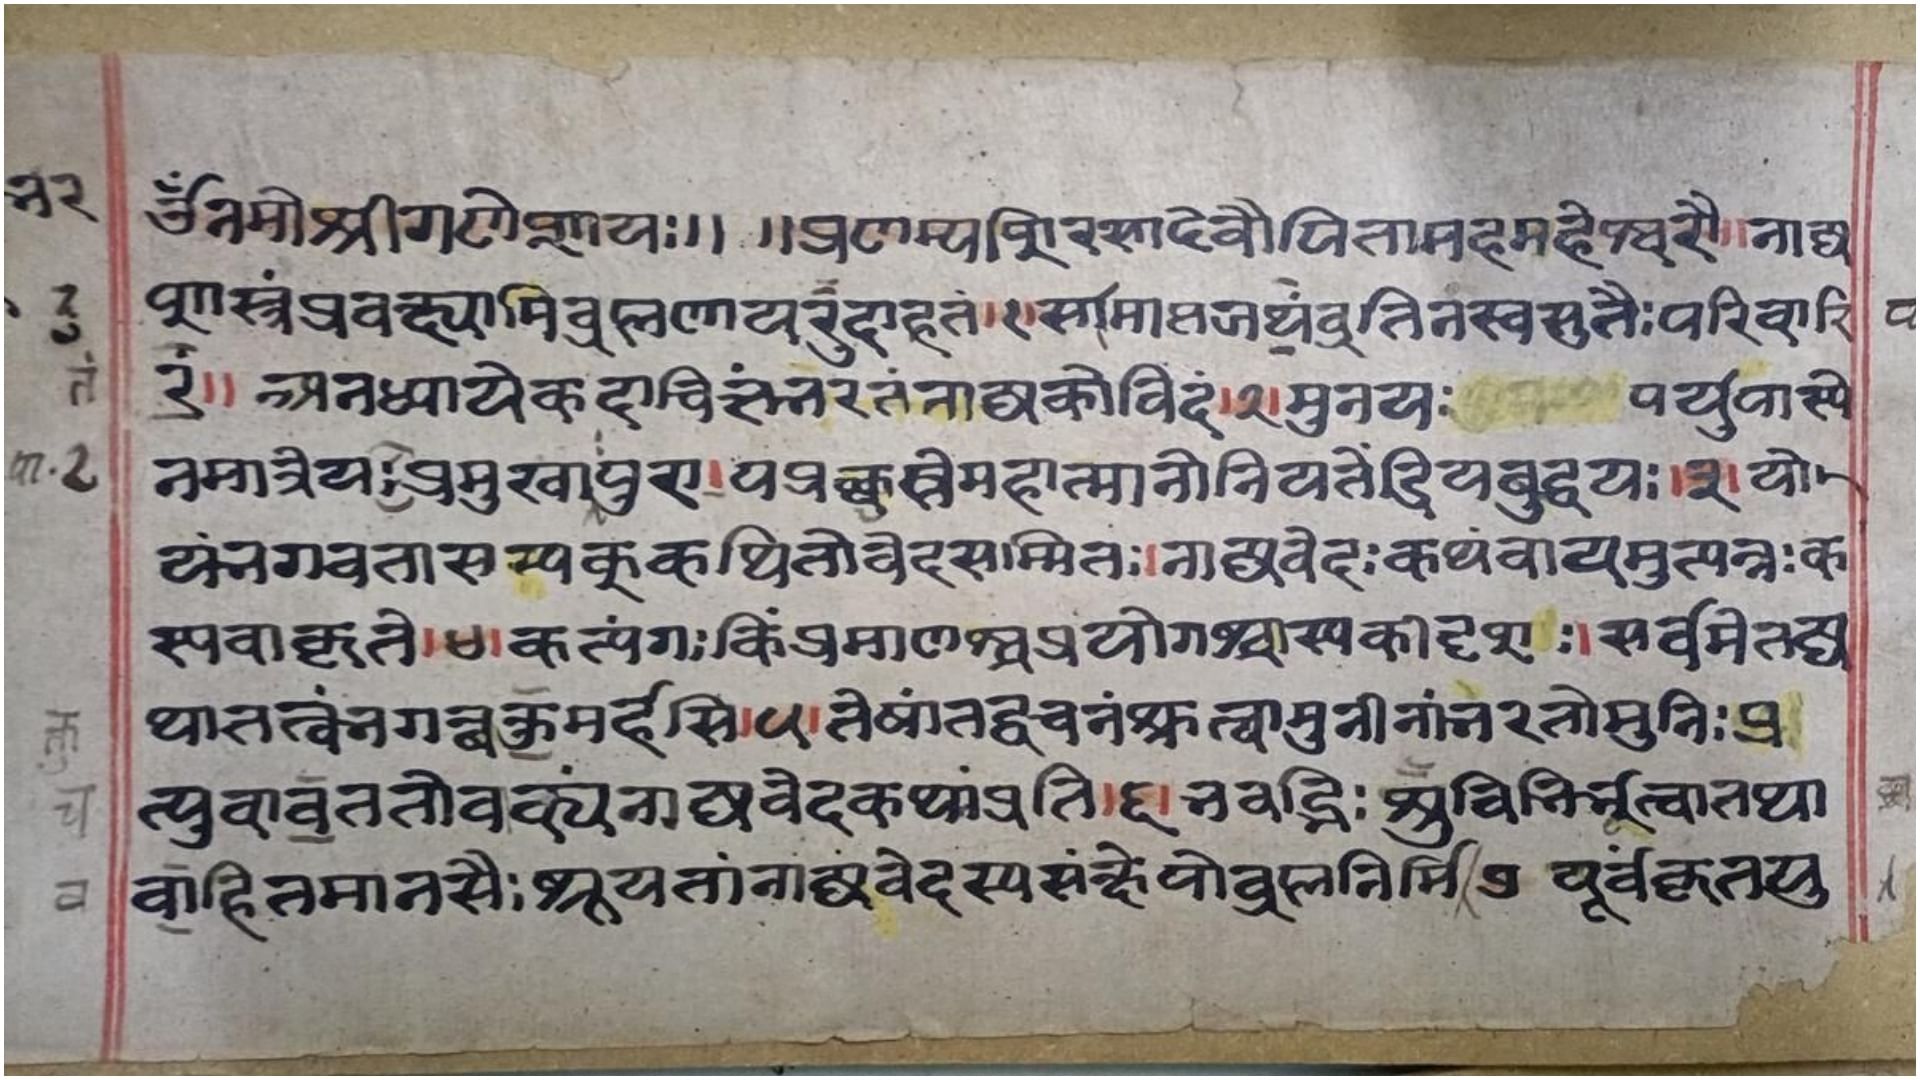 ॐनमोश्रीगणेशायः॥ ॥प्रणम्यशिरसादेवौपितामहमहेश्वरौ॥नाट्य
शास्त्रंप्रवक्ष्यामिब्रह्मणायरुदाहृतं।१।समाप्तजप्यंव्रतिनस्वसुतैःपरिवारि
तं॥ अनध्यायेकदाचित्तंभरतंनाट्यकोविदं।२।मुनयः पर्युपास्ये
नमात्रेयःप्रमुखापुरा।पप्रच्छुस्तेमहात्मानोनियतेंद्रियबुद्धयः।३।यो
यंभगवतासम्यक्कथितोवेदसम्मितः।नाट्यवेदःकथंवायमुत्पन्नःक
स्यवाकृते।४।कत्यंगःकिंप्रमाणश्चप्रयोगश्चास्यकीदृशः।सर्वमेतद्य
थातत्वंभगवन्वक्तुमर्हसि।५।तेषांतद्वचनंश्रुत्वामुनीनांभरतोमुनिः।प्र
त्युवाचततोवाक्यंनाट्यवेदकथांप्रति।६।भवद्भिः शुचिभिर्भूत्वातथा
वाहितमानसैःश्रूयतांनाट्यवेदस्यसंक्षेपोब्रह्मनिर्मि पूर्वंकृतयु